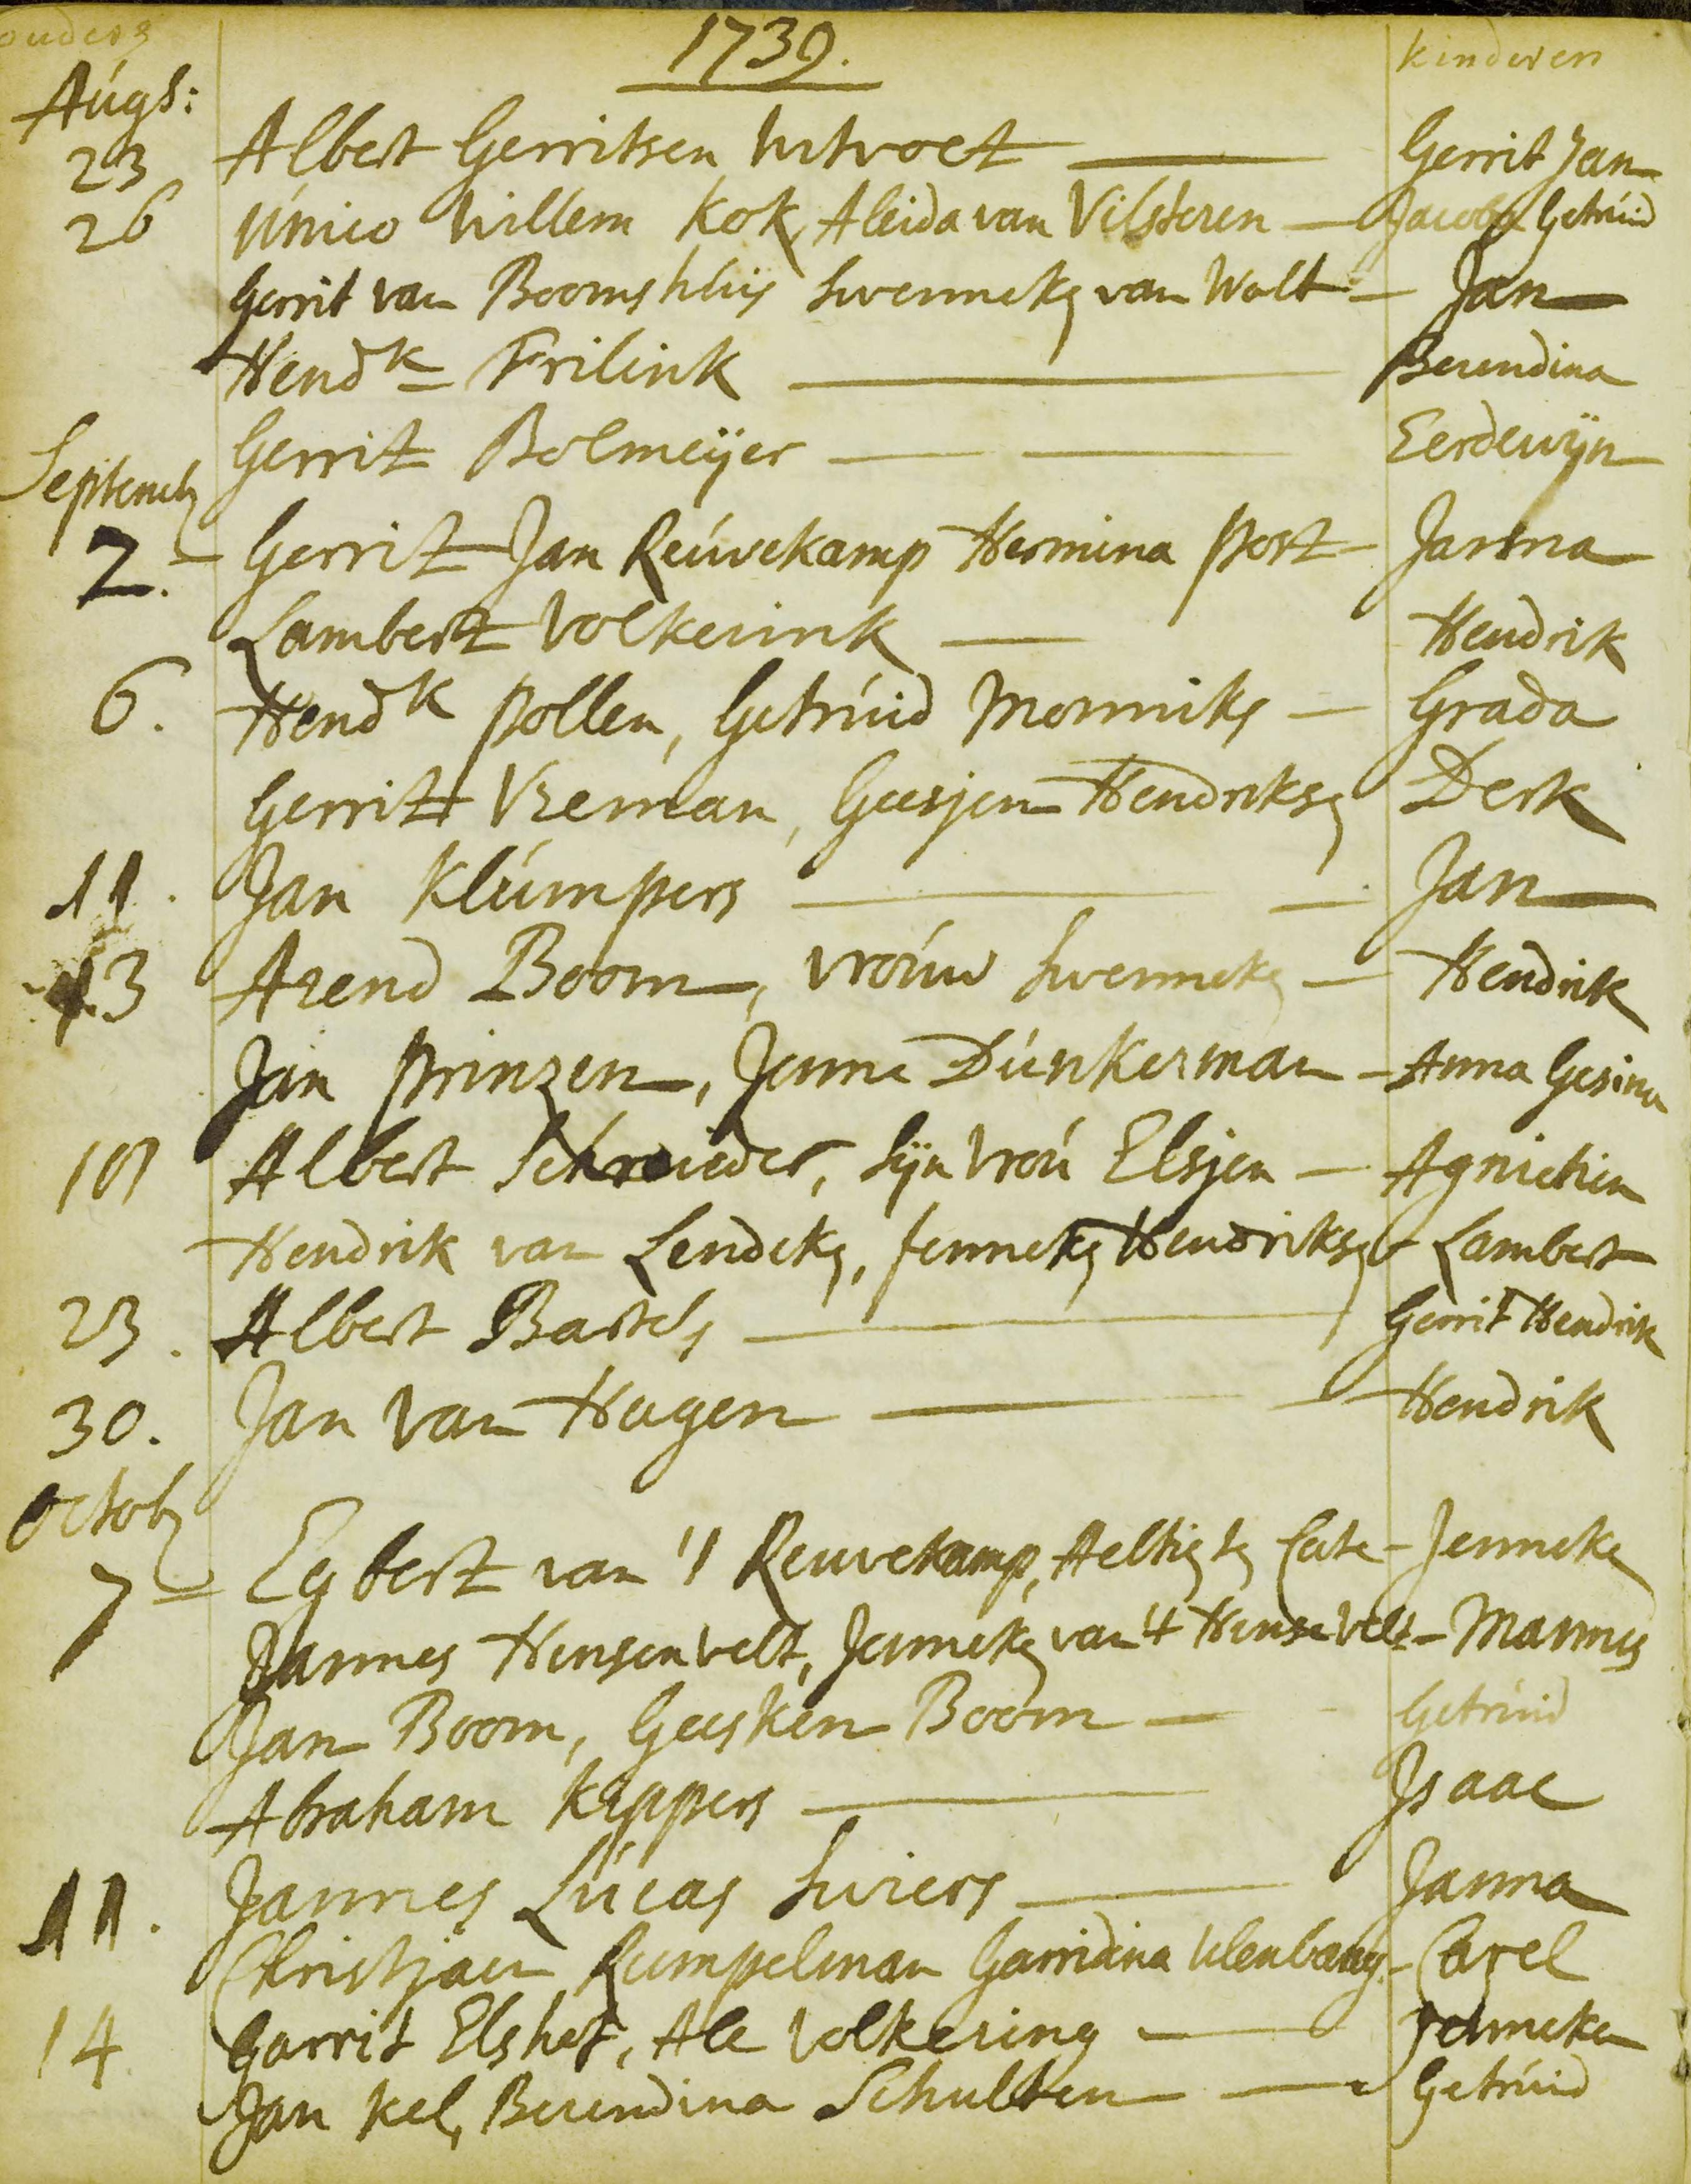 ouders 1739. kinderen
Augs:
23 Albert Gerritsen Witvoet Gerrit Jan
26 Unico Willem Kok, Aleida van Vilsteren - Jacoba Getruid
Gerrit van Boomshuis Swenneke van Walt - Jan
Hendk Frilink Berendina
Gerrit Bolmeijer Eerdewijn
Septemb
2. - Gerrit Jan Reuvekamp Hermina Post - Janna
Lambert Volkerink Hendrik
6. Hendk Pollen, Getruid Monniks - Grada
Gerrit Vreman, Geesjen Hendriks Derk
11. Jan Klumpers Jan
13 Arend Boom, vrouw Swenneke - Hendrik
Jan Prinzen, Janna Dunkerman - Anna Gesina
Albert Schreuder, Sijn Vrou Elsjen - Agnietien
Hendrik van Lendeke, Jenneke Hendriks - Lambert
23. Albert Bartels Gerrit Hendrik
30. Jan van Hagen Hendrik
Octob
7 - Egbert van 't Reuvekamp, Aeltie te Cate - Jenneke
Jannes Hensenvelt, Jenneke van 't Hensevelt - Mannes
Jan Boom, Geesken Boom - Getruid
Abraham Kuppers Isaac
11. Jannes Lucas Swiers Janna
Christjaen Rumpelman Garridina Ulenbarg - Carel
14 Garrit Elshof, Ale Volkering - Jenneken
Jan Kel, Berendina Schulten - Getruid